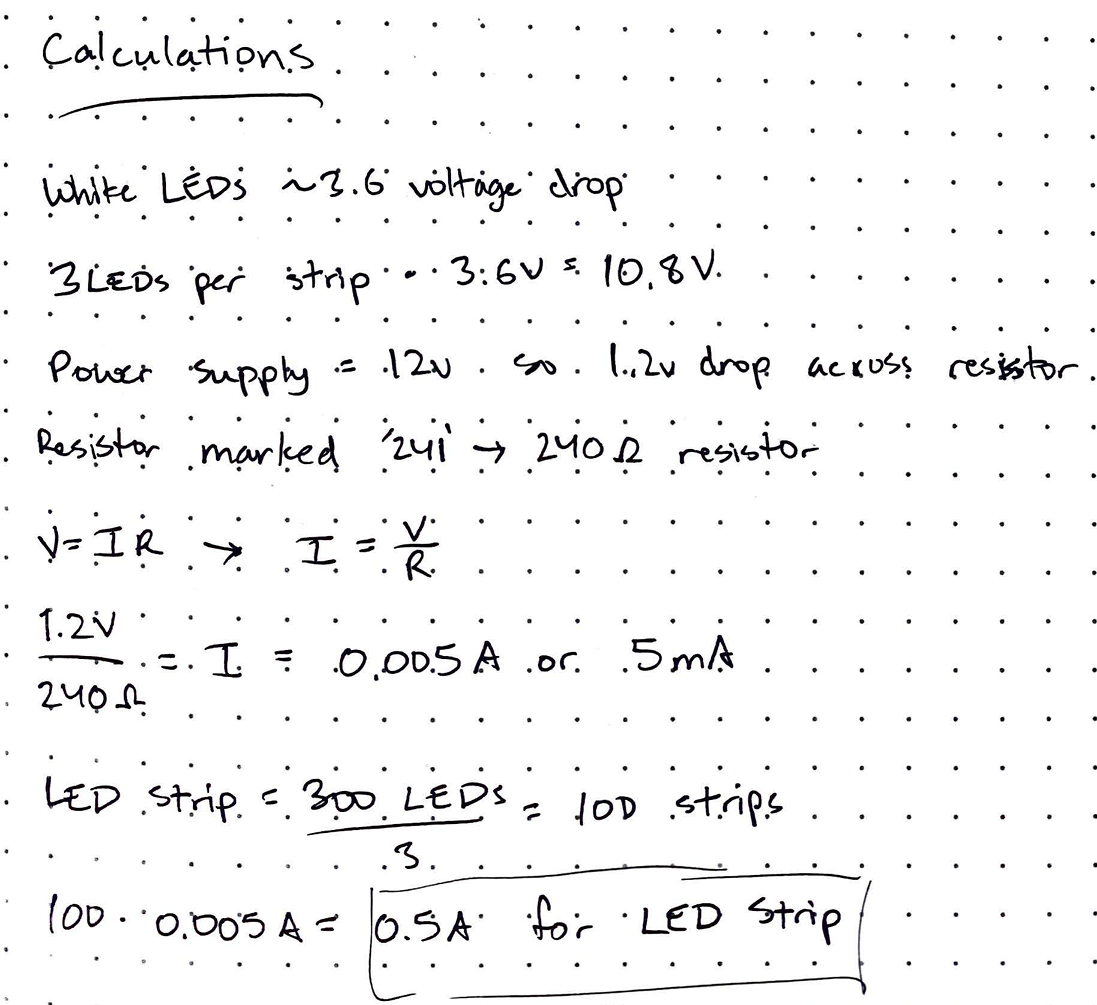 Calculations
White LEDs ~3.6 voltage drop
3 LEDs per strip · 3.6V = 10.8V
Power supply = 12V so 1.2V drop across resistor
Resistor marked '241' → 240Ω resistor
V=IR → I = V/R
1.2V/240Ω = I = 0.005A or 5mA
LED strip = 300 LEDs/3 = 100 strips
100 · 0.005A = 0.5A for LED Strip